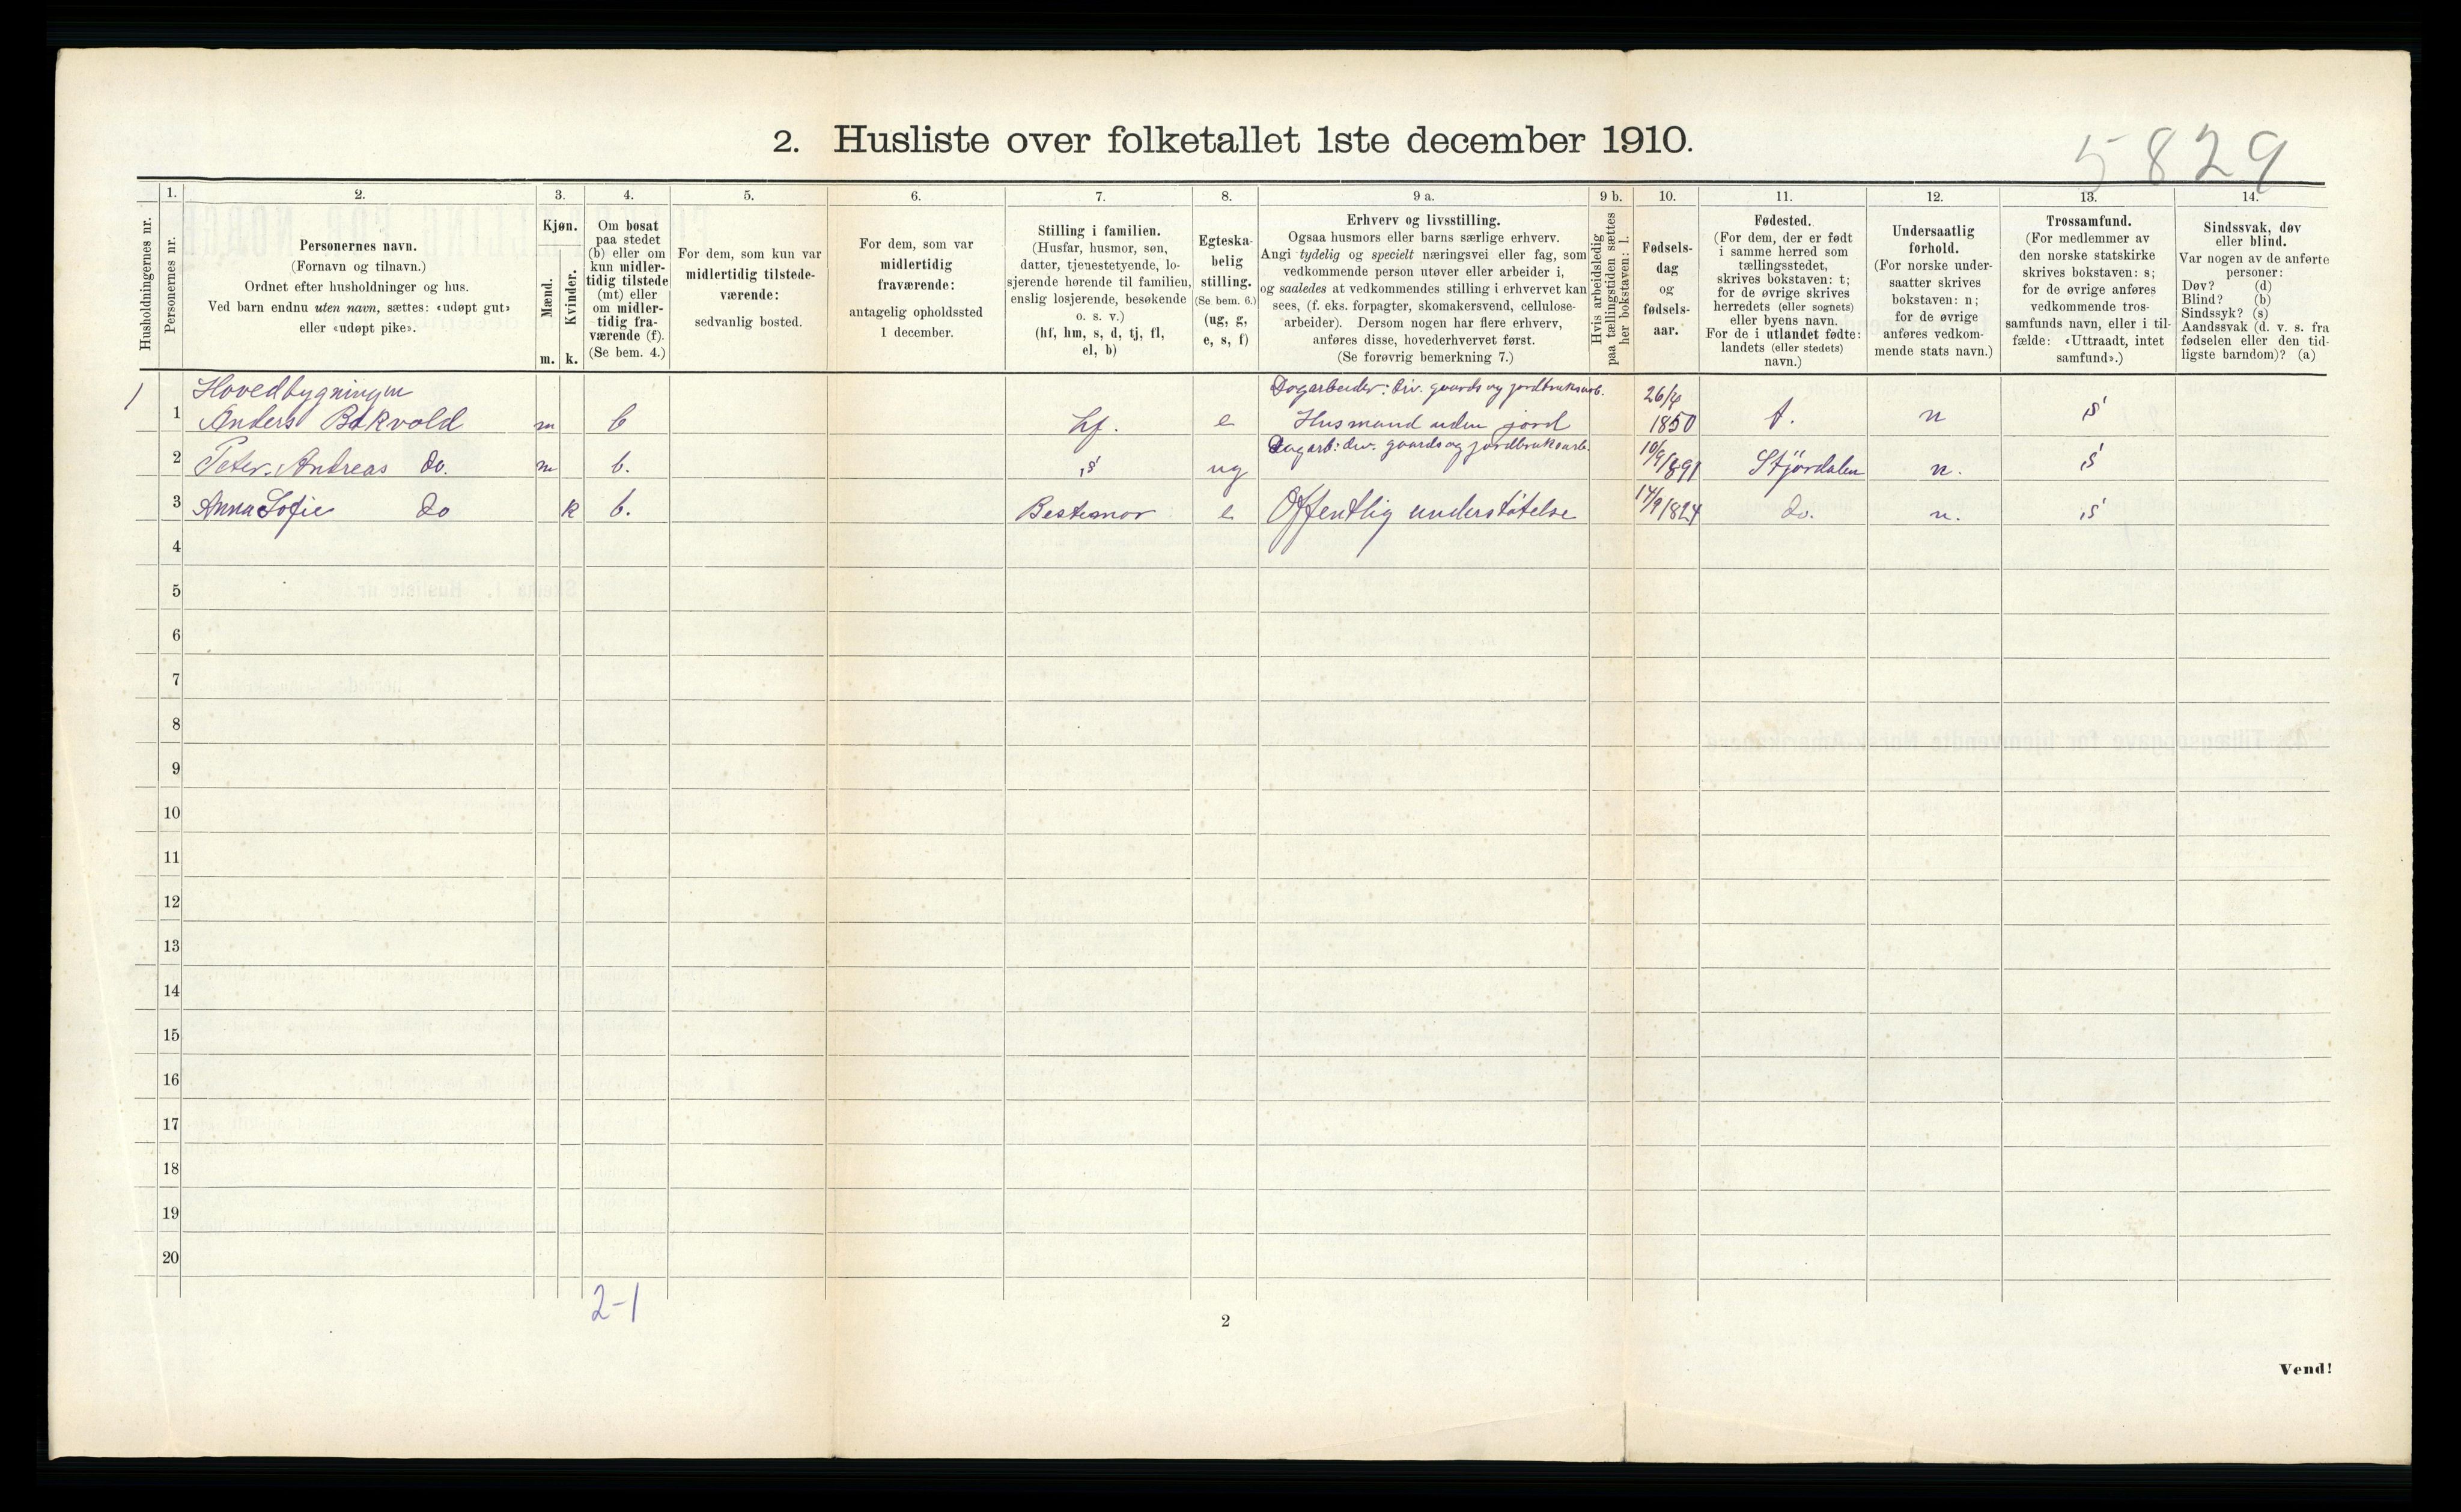 2. Husliste over folketallet 1ste december 1910.
5829
Husholdningernes nr.
1.
Personernes nr.
2.
Personernes navn.
(Fornavn og tilnavn.)
Ordnet efter husholdninger og hus.
Ved barn endnu uten navn, sættes: «udøpt gut»
eller «udøpt pike».
3.
Kjøn.
Mænd.
Kvinder.
m. k.
4.
Om bosat
paa stedet
(b) eller om
kun midler-
tidig tilstede
(mt) eller
om midler-
tidig fra-
værende (f).
(Se bem. 4.)
5.
For dem, som kun var
midlertidig tilstede-
værende:
sedvanlig bosted.
6.
For dem, som var
midlertidig
fraværende:
antagelig opholdssted
1 december.
7.
Stilling i familien.
(Husfar, husmor, søn,
datter, tjenestetyende, lo-
sjerende hørende til familien,
enslig losjerende, besøkende
o. s. v.)
(hf, hm, s, d, tj, fl,
el, b)
8.
Egteska-
belig
stilling.
(Se bem. 6.)
(ug, g,
e, s, f)
9 a.
Erhverv og livsstilling.
Ogsaa husmors eller barns særlige erhverv.
Angi tydelig og specielt næringsvei eller fag, som
vedkommende person utøver eller arbeider i,
og saaledes at vedkommendes stilling i erhvervet kan
sees, (f. eks. forpagter, skomakersvend, cellulose-
arbeider). Dersom nogen har flere erhverv,
anføres disse, hovederhvervet først.
(Se forøvrig bemerkning 7.)
9 b.
Hvis arbeidsledig
paa tællingstiden sættes
her bokstaven: l.
10.
Fødsels-
dag
og
fødsels-
aar.
11.
Fødested.
(For dem, der er født
i samme herred som
tællingsstedet,
skrives bokstaven: t;
for de øvrige skrives
herredets (eller sognets)
eller byens navn.
For de i utlandet fødte:
landets (eller stedets)
navn.)
12.
Undersaatlig
forhold.
(For norske under-
saatter skrives
bokstaven: n;
for de øvrige
anføres vedkom-
mende stats navn.)
13.
Trossamfund.
(For medlemmer av
den norske statskirke
skrives bokstaven: s;
for de øvrige anføres
vedkommende tros-
samfunds navn, eller i til-
fælde: «Uttraadt, intet
samfund».)
14.
Sindssvak, døv
eller blind.
Var nogen av de anførte
personer:
Døv? (d)
Blind? (b)
Sindssyk? (s)
Aandssvak (d. v. s. fra
fødselen eller den tid-
ligste barndom)? (a)
Hovedbygningen
Dagarbeider: div. gaards og jordbruksarb.
1 1 Anders Bakvold m b hf. e Husmand uden jord 26/4 1850 t. n s
Dagarb: div. gaards og jordbruksarb.
2 Peter Andreas do. m b. s ug 10/9 1891 Stjørdalen n. s
3 Anna Sofie do k b. Bestemor e Offentlig understøtelse 14/9 1824 do. n. s
4
5
6
7
8
9
10
11
12
13
14
15
16
17
18
19
20
2-1
2
Vend!